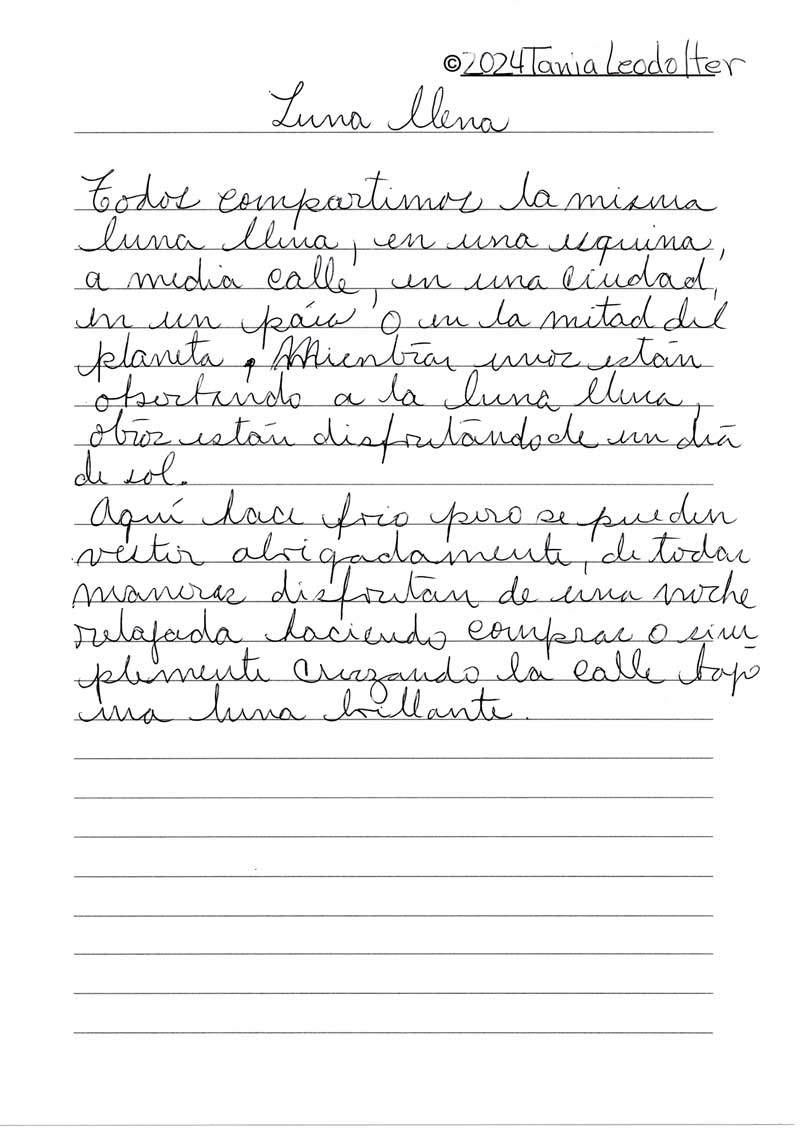 ©2024 Tania Leodolter
Luna llena
Todos compartimos la misma
luna llena, en una esquina,
a media calle, en una ciudad,
en un páis o en la mitad del
planeta, Mientras unos están
observando a la luna llena,
otros están disfrutando de un día
de sol.
Aquí hace frio pero se pueden
vestir abrigadamente, de todas
maneras disfrutan de una noche
relajada haciendo compras o sim
plemente cruzando la calle bajo
una luna brillante.